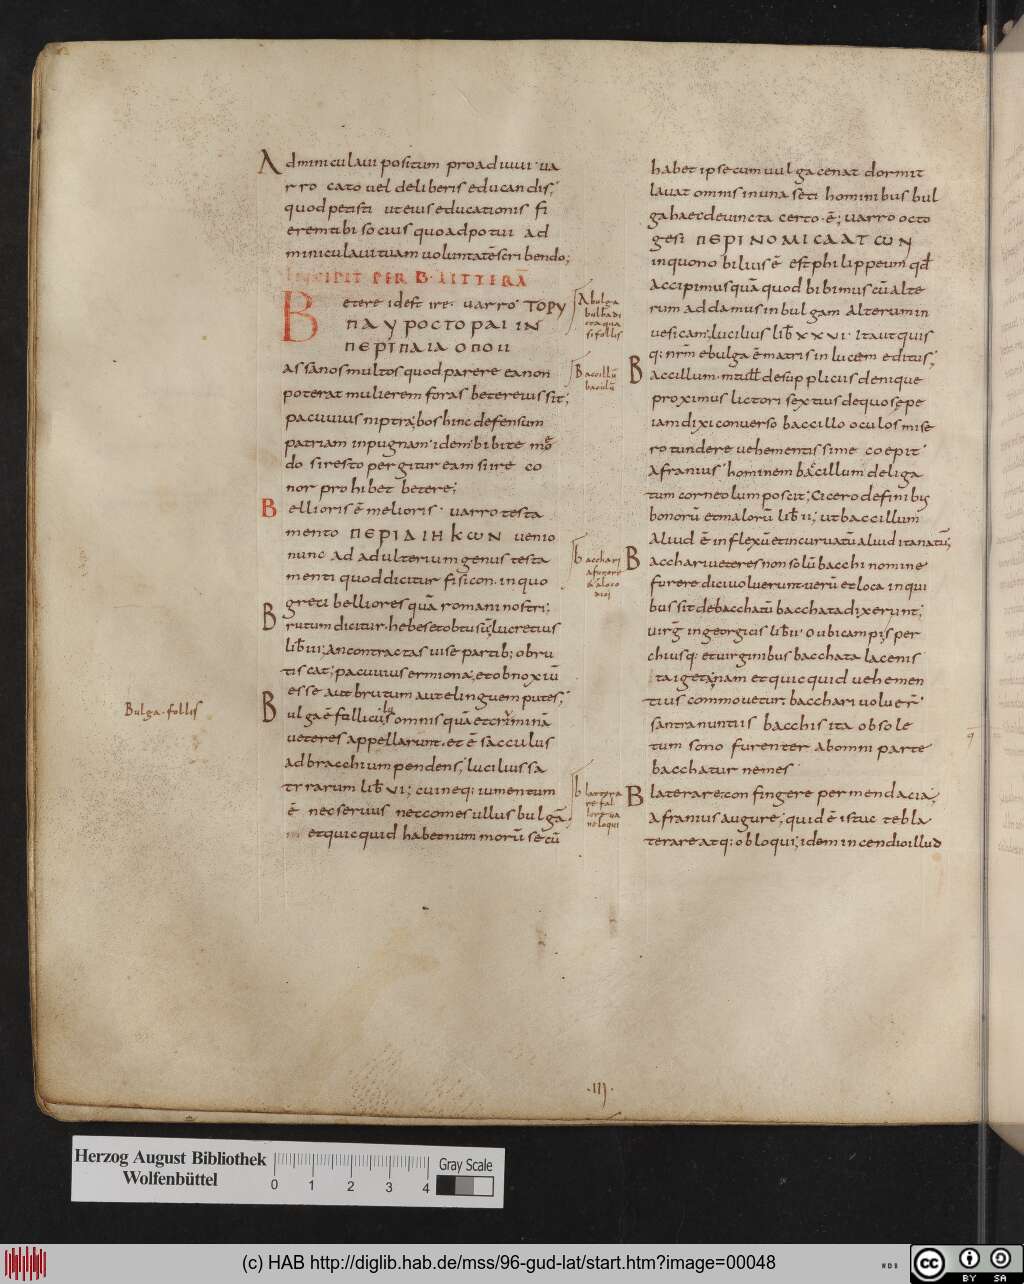 Adminiculaui positum pro adiuui ua
rro cato uel de liberis educandis;
quod petisti ut eius educationis fi
erem tibi socius quoad potui ad
miniculaui tuam uoluntatē scribendo;
INCIPIT PER B LITTERĀ
Betere idest ire. uarro ΤΟΡΥ
ΠΑΥΡΟCΤΟΡΑΙ ΙΝ
ΠΕΡΙΠΑΙΑ ΟΠΟΙΙ
assanos multos quod parere ea non
poterat mulierem foras betere iussit;
pacuuius niptra; bos hinc defensum
patriam in pugnam. idem bibite mo
do si resto pergitur eam si ire co
nor prohibet betere;
Bellioris ē melioris. uarro testa
mento ΠΕΡΙΔΙΗΚωΝ uenio
nunc ad adulterium genus testa
menti quod dicitur fisicon. in quo
greci belliores quā romani nostri;
Brutum dicitur. hebes et obtusū; lucretius
lib̄ ui; An contractas uise partib; obru
tis cat; pacuuius ermiona; et obnoxiū
esse aut brutum aut elinguem putes;
Bulga ē folliculus omnis quā et crūminā
ueteres appellarunt. et ē sacculus
ad bracchium pendens; lucilius sa
tyrarum lib̄ ui; cui neq; iumentum
ē nec seruus nec comes ullus bulgā;
et quicquid habet nummorū secū
Bulga. follis
Abulga
bulba di
cta qua
si follis
Baccillū
baculū
bacchari
a furore
& a loco
dici
blatera
re fal
lere ua
ne loqui
habet ipse cum uulga cenat dormit
lauat omnis in una seti hominibus bul
ga haec deuincta certo. ē; uarro octo
gesi ΠΕΡΙΝΟΜΙCΑΑΤωΝ
inquono biliuis ē est philippeum qđ
accipimus quā quod bibimus cū alte
rum addamus in bulgam alterum in
uesicam; lucilius lib̄ xxui. Ita ut quis
q; nrm̄ e bulga ē matris in lucem editus;
Baccillum. m tull̄ de supplicus denique
proximus lictori sextius de quo sępe
iam dixi conuerso baccillo oculos mise
ro tundere uehementissime coepit
Afranius hominem baccillum deliga
tum corneolum poscit; Cicero de finibus
bonorū et malorū lib̄ ii; ut baccillum
Aliud ē inflexū et incuruatū aliud ita natū;
Bacchari ueteres non solū bacchi nomine
furere dici uoluerunt uerū et loca in qui
bus sit debacchatū bacchata dixerunt;
uirḡ in georgicis lib̄ ii. O ubi campi sper
chiusq; et uirginibus bacchata lacenis
taigeta; nam et quicquid uehemen
tius commouetur. bacchari uoluer̄
santra nuntiis bacchis ita obsole
tum sono furenter ab omni parte
bacchatur nemes
Blaterare; confingere per mendacia;
Afranius augure; quid ē istuc te bla
terare atq; obloqui; idem incendio illud
·III·
Herzog August Bibliothek
Wolfenbüttel
0 1 2 3 4
Gray Scale
(c) HAB http://diglib.hab.de/mss/96-gud-lat/start.htm?image=00048
WDB
CC BY SA